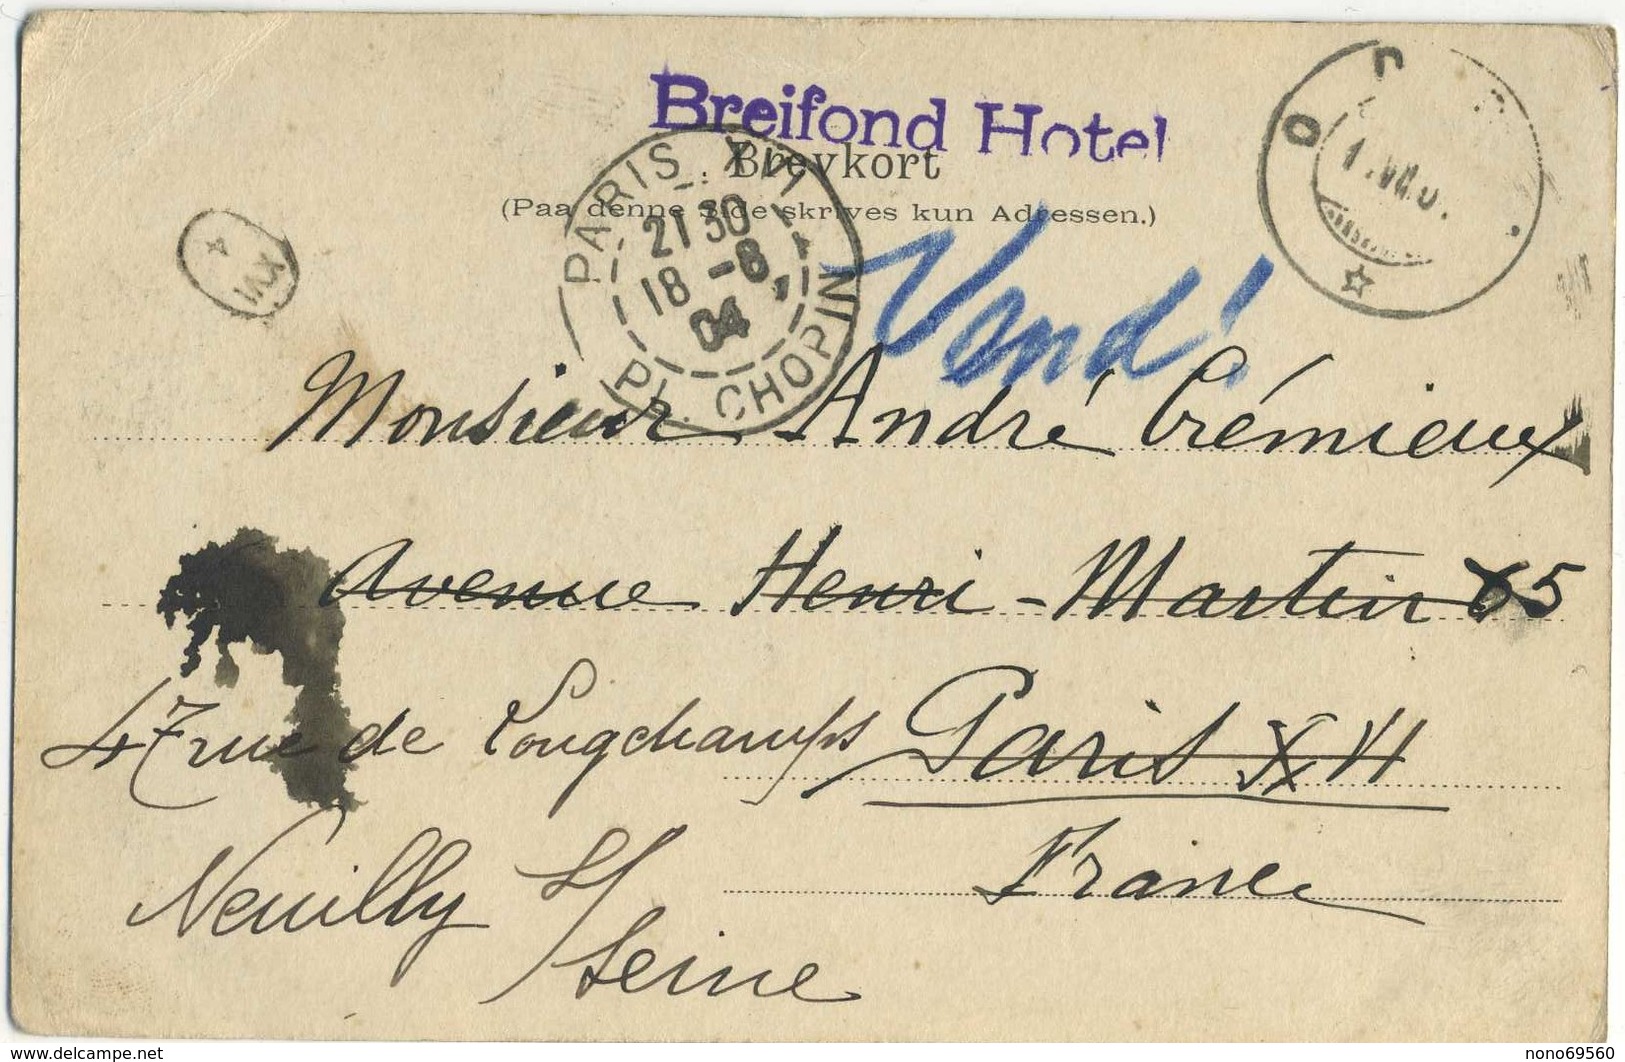 Breifond Hotel
Brevkort
(Paa denne Side skrives kun Adressen.)
PARIS XVI
21 30
18 -8
04
PL. CHOPIN
XVI
4
Vend!
Monsieur André Crémieux
Avenue Henri-Martin 65
47 rue de Longchamps Paris XVI
France
Neuilly s/
Seine
www.delcampe.net
nono69560